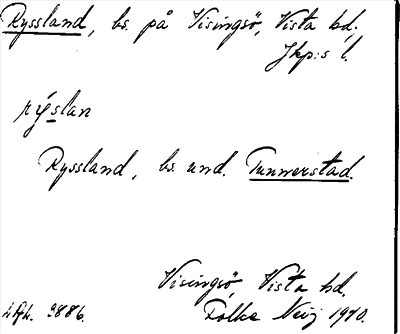 Ryssland, bs. på Visingsö, Vista hd.,
Jkp:s l.
rýslan
Ryssland, bs. und. Tunnerstad.
Visingsö, Vista hd.
3886. Folke Meij 1910.